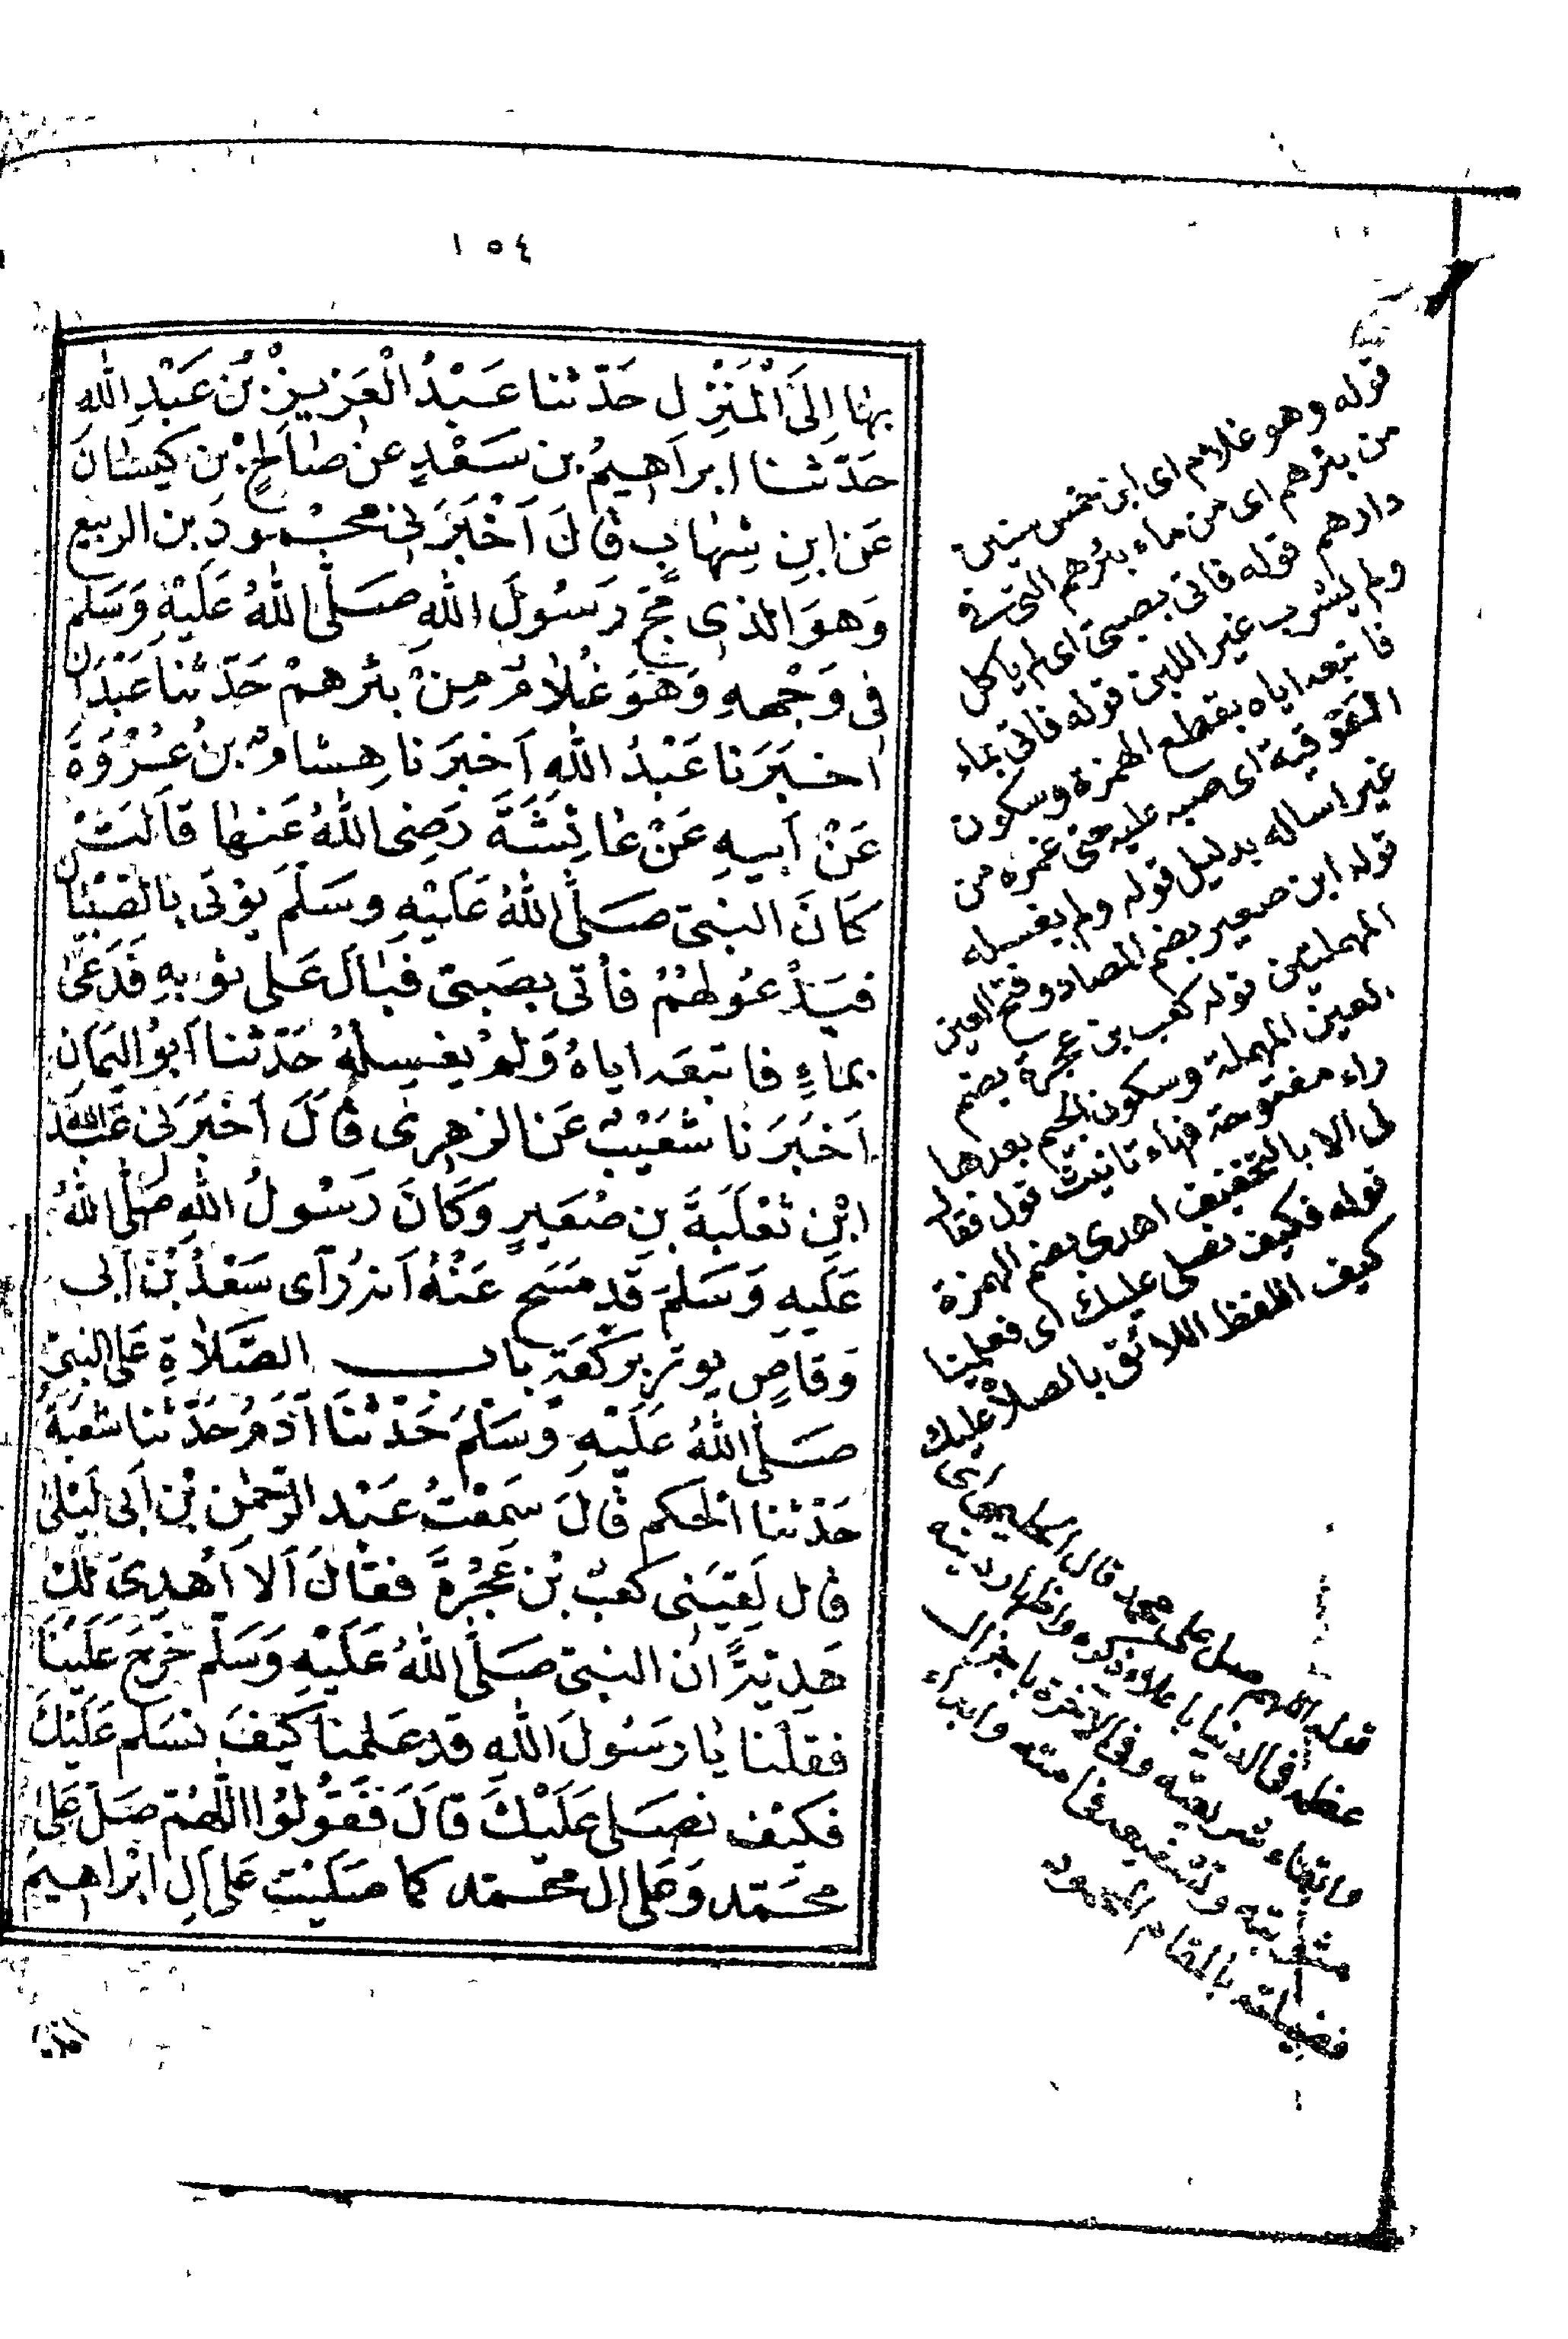 ١٥٤
بها إِلَى الْمَنْزِلِ حَدّثنا عَبْدُ الْعَزِيزِ بْنُ عَبْدِ اللهِ
حَدّثنا ابراَهِيمُ بن سَعْدٍ عنْ صاَلحِ بْنِ كيَسْانَ
عَن ابنِ شِهابٍ قالَ اَخْبَرَنى محْمودُ بن الربيع
وَهوَ الذى مَجَّ رَسُولُ اللهِ صَلَّى اللهُ عَلَيْهِ وَسَلم
فى وَجْههِ وَهوَ غُلامٌ مِنْ بئرهمْ حَدّثنا عَبْدَانُ
اخبَرَنا عَبْدُ اللهِ اَخبَرَنا هِشامُ بنُ عُرْوَةَ
عَنْ اَبيهِ عَنْ عائِشَةَ رَضِىَ اللهُ عَنها قاَلتْ
كانَ النبىّ صَلَّى اللهُ عَلَيْهِ وسَلَّمَ يؤتى بالصّبْيان
فيَدْعُو لهُمْ فأتى بصَبىّ فبَالَ عَلى ثوْبهِ فَدَعى
بماءٍ فاتبعَه اياهُ وَلمْ يغسِلهُ حَدّثنا اَبوُ اليَمانِ
اَخبَرَنا شعَيْبٌ عَن الزهرِى قالَ اَخبَرَنى عَبْدُ اللهِ
ابْنُ ثعْلَبَةَ بنِ صُعَيرٍ وَكانَ رَسُولُ اللهِ صَلَّى اللهُ
عَلَيهِ وَسَلَّمَ قدِ مَسَح عَنْهُ اَنهُ رَآى سَعْدَ بْنَ اَبى
وَقاصٍ يوترُ بركْعَةٍ باب الصَّلاةِ عَلى النبىّ
صَلَّى اللهُ عَلَيْهِ وَسَلَّمَ حَدّثنَا آدَمُ حَدَّثنا شعْبَةُ
حَدّثنا الحَكم قالَ سَمعْتُ عَبْد الرَّحمنِ بْن اَبى لَيْلى
قال لَقِيَنى كعْبُ بْن عُجْرَةَ فقالَ اَلا اُهْدِىَ لكَ
هَدِيّةً ان النبىّ صَلَّى اللهُ عَلَيْهِ وَسَلَّم خَرجَ عَلَينَا
فقلْنا يا رَسُولَ اللهِ قدْ عَلمنا كَيْفَ نسَلم عَلَيْكَ
فكيْف نصَلى عَلَيْكَ قالَ فَقولُوا اللّهُمّ صَلّ عَلى
محَمّد وَعَلى ال محمّد كما صَلَّيْت عَلى آلِ ابْراهِيمَ
قوله وهو غلام اى ابن خمس سنين
من بئرهم اى من ماء بئرهم التى فى
دارهم قوله فاتى بصبى اى لم ياكل
ولم يشرب غير اللبن قوله فاتى بماء
فاتبعه اياه بقطع الهمزة وسكون
الفوقية اى صبه عليه حتى غمره من
غير اساله بدليل قوله ولم يغسله
قوله ابن صعير بضم الصاد وفتح العين
المهملتين قوله كعب بن عجرة بضم
العين المهملة وسكون الجيم بعدها
راء مفتوحة فهاء تانيث قوله فقال
لى الا بالتخفيف اهدى بضم الهمزة
قوله فكيف نصلى عليك اى فعلمنا
كيف اللفظ اللائق بالصلاة عليك
قوله اللهم صل على محمد قال الحليمى اى
عظمه فى الدنيا باعلاء ذكره واظهار دينه
وابقاء شريعته وفى الآخرة باجزال
مثوبته وتشفيعه فى امته وابداء
فضيلته بالمقام المحمود